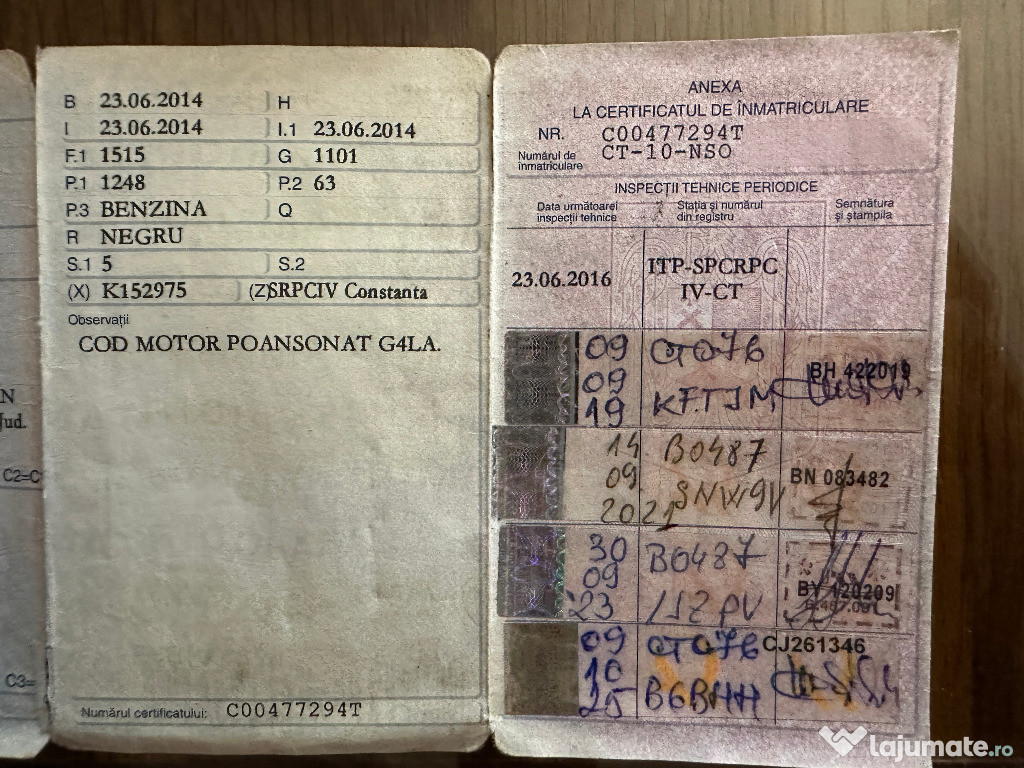 N
Jud.
C2=C
C3=
B 23.06.2014 H
I 23.06.2014 I.1 23.06.2014
F.1 1515 G 1101
P.1 1248 P.2 63
P.3 BENZINA Q
R NEGRU
S.1 5 S.2
(X) K152975 (Z)SRPCIV Constanta
Observații
COD MOTOR POANSONAT G4LA.
Numărul certificatului: C00477294T
ANEXA
LA CERTIFICATUL DE ÎNMATRICULARE
NR. C00477294T
Numărul de înmatriculare CT-10-NSO
INSPECȚII TEHNICE PERIODICE
Data următoarei inspecții tehnice
Stația și numărul din registru
Semnătura și ștampila
23.06.2016 ITP-SPCRPC
IV-CT
09 CT076 BH 422019
09
19 KFTJM
14 B0487 BN 083482
09
2021 SNW9V
30 B0487
09 BY 120209
'23
09 CT076 CJ261346
10
25 B6BHH
lajumate.ro